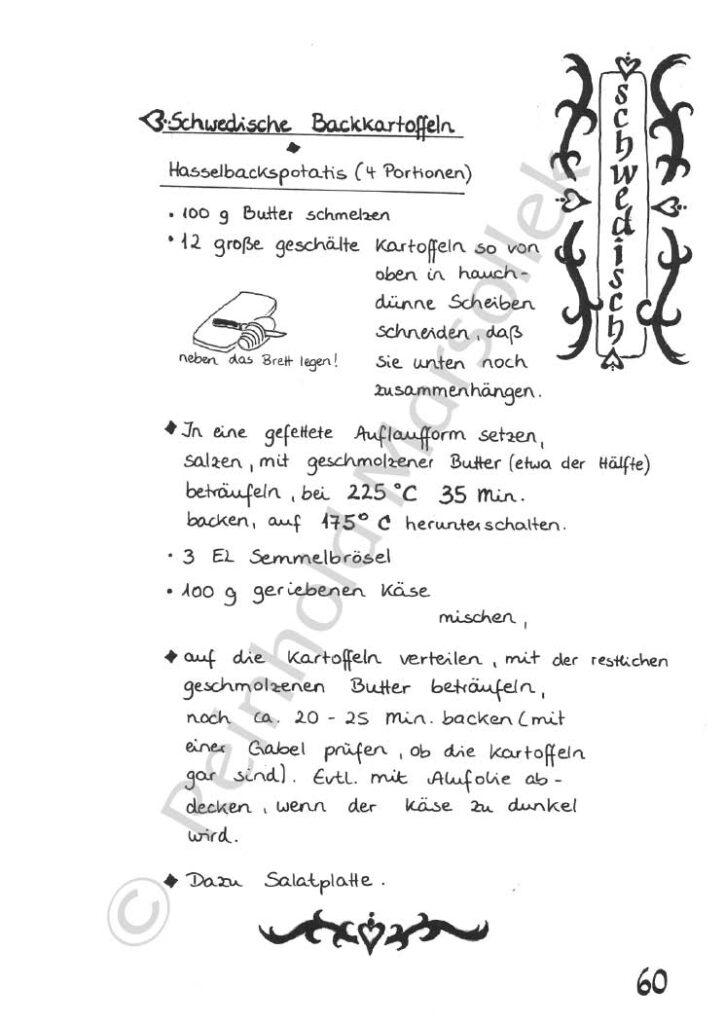 Schwedische Backkartoffeln
Hasselbackspotatis (4 Portionen)
• 100 g Butter schmelzen
• 12 große geschälte Kartoffeln so von
oben in hauch-
dünne Scheiben
schneiden, daß
sie unten noch
zusammenhängen.
neben das Brett legen!
♦ In eine gefettete Auflaufform setzen,
salzen, mit geschmolzener Butter (etwa der Hälfte)
beträufeln, bei 225°C 35 Min.
backen, auf 175°C herunterschalten.
• 3 EL Semmelbrösel
• 100 g geriebenen Käse
mischen,
♦ auf die Kartoffeln verteilen, mit der restlichen
geschmolzenen Butter beträufeln,
noch ca. 20 - 25 Min. backen (mit
einer Gabel prüfen, ob die Kartoffeln
gar sind). Evtl. mit Alufolie ab-
decken, wenn der Käse zu dunkel
wird.
♦ Dazu Salatplatte.
schwedisch
© Reinhold Marsollek
60